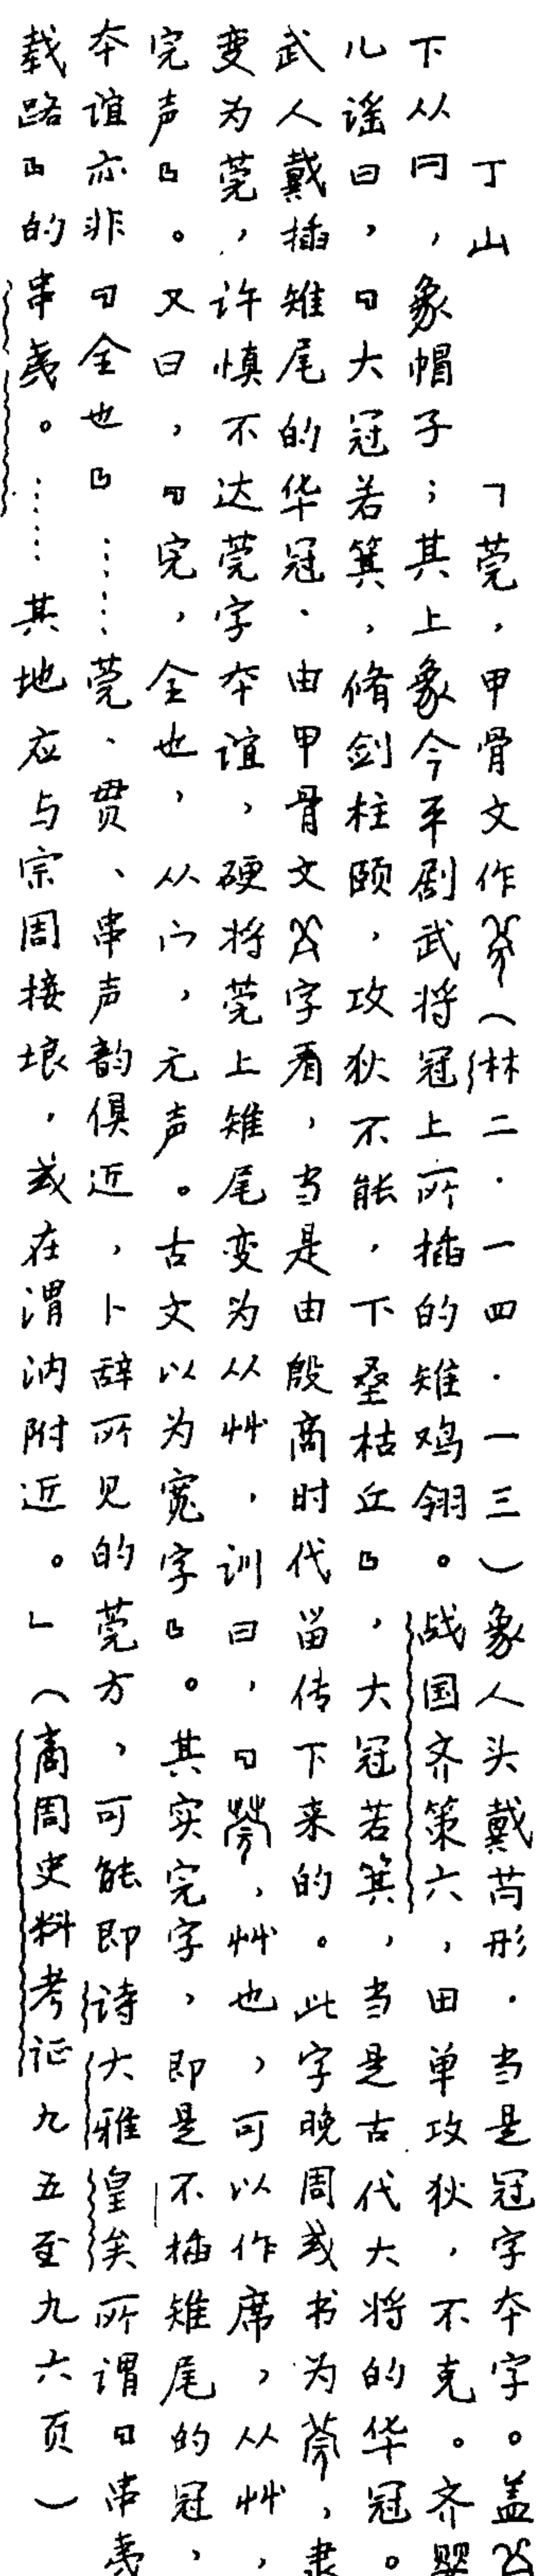 丁山 「莞，甲骨文作（林二．一四．一三）象人头戴芮形．当是冠字夲字。盖
下从冃，象帽子；其上象今平剧武将冠上所插的雉鸡翎。战国齐策六，田单攻狄，不克。齐婴
儿谣曰，『大冠若箕，脩剑柱颐，攻狄不能，下垒枯丘』，大冠若箕，当是古代大将的华冠。
武人戴插雉尾的华冠．由甲骨文字看，当是由殷商时代留传下来的。此字晚周或书为，隶
变为莞，许慎不达莞字夲谊，硬将莞上雉尾变为从艸，训曰，『，艸也，可以作席，从艸，
完声』。又曰，『完，全也，从宀，元声。古文以为宽字』。其实完字，即是不插雉尾的冠，
夲谊亦非『全也』……莞、贯、串声韵俱近，卜辞所见的莞方，可能即诗大雅皇矣所谓『串夷
载路』的串夷。……其地应与宗周接埌，或在渭汭附近。」（商周史料考证九五至九六页）